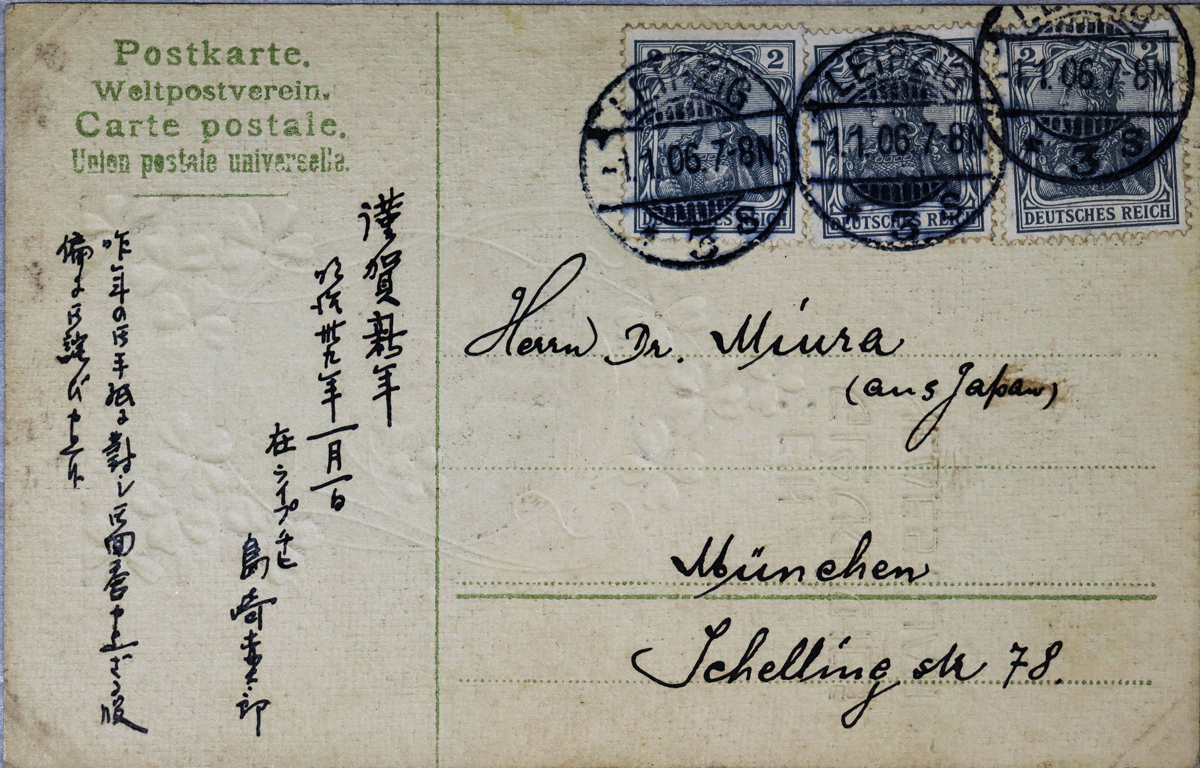 Postkarte.
Weltpostverein.
Carte postale.
Union postale universelle.
2 2
DEUTSCHES REICH
DEUTSCHES REICH
LEIPZIG
-1.1.06.7-8N.
* 3 S
LEIPZIG
-1.1.06.7-8N.
3 S
-1.1.06.7-8N
* 3 S
Herrn Dr. Miura
(aus Japan)
München
Schelling str 78.
謹賀新年
明治卅九年一月一日
在ライプチヒ
島崎赤太郎
昨年の御手紙に對し御面倒申上ざる段
備に御詫び申上候